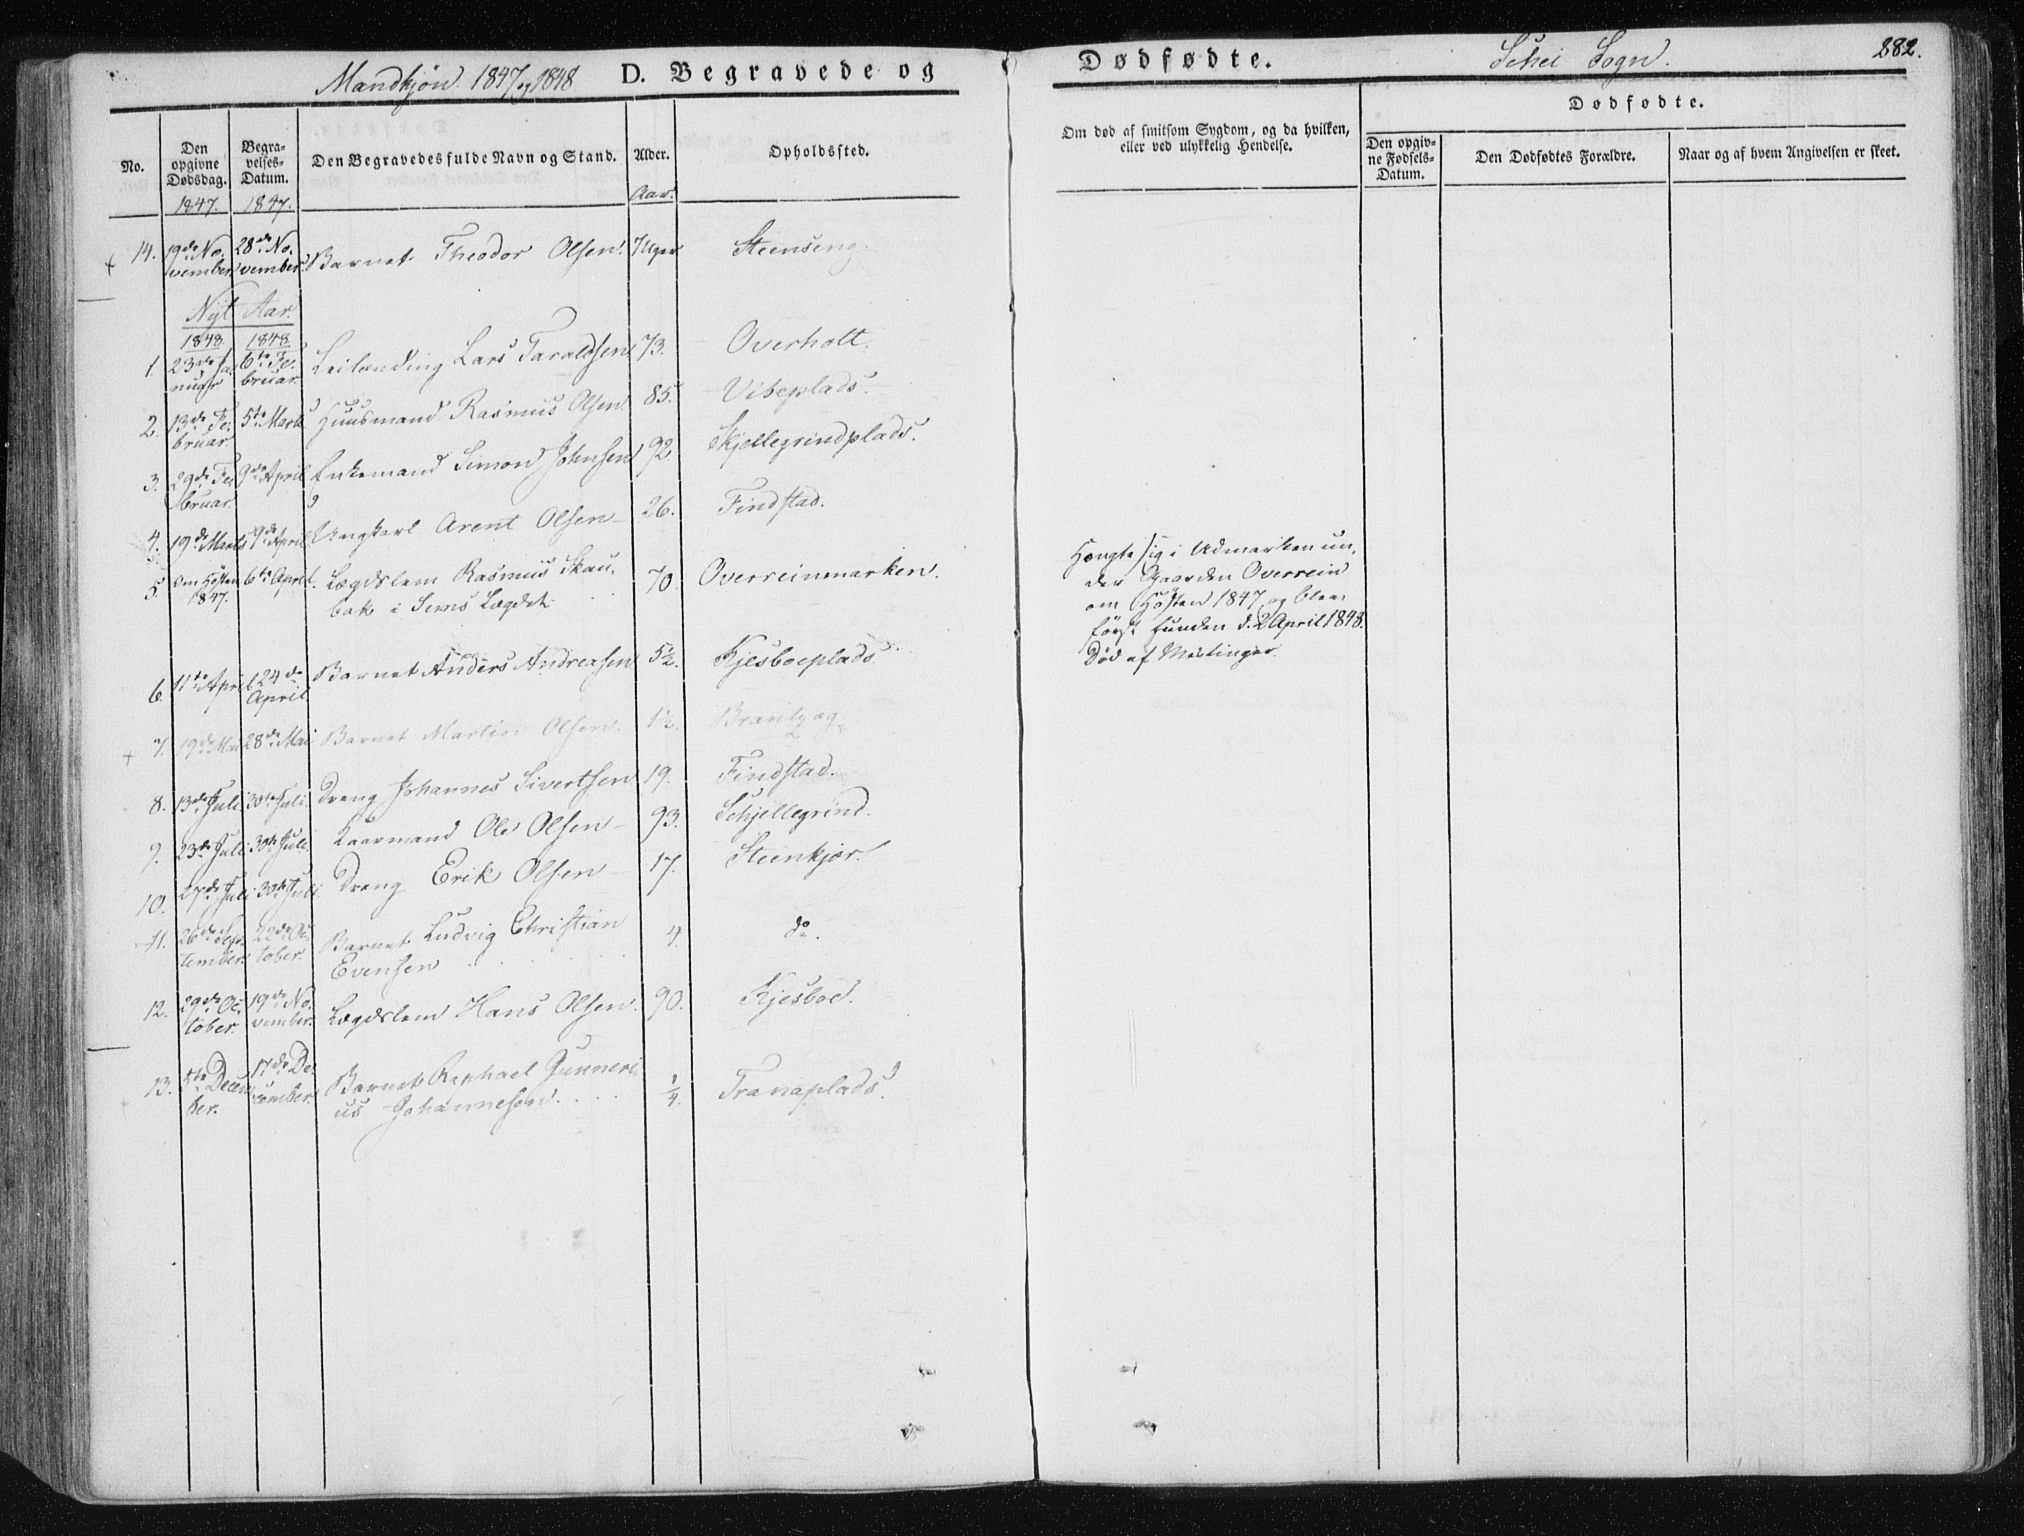 Mandkjøn. 1847 og 1848 D. Begravede og Dødfødte. Schei Sogn. 282.
No.
Den opgivne Dødsdag.
Begravelses-Datum.
Den Begravedes fulde Navn og Stand.
Alder.
Opholdssted.
Om død af smitsom Sygdom, og da hvilken, eller ved ulykkelig Hendelse.
Dødfødte.
Den opgivne Fødsels-Datum.
Den Dødfødtes Forældre.
Naar og af hvem Angivelsen er skeet.
1847. 1847. Aar.
14. 19de November 28de November. Barnet Theodor Olsen. 7 Uger Steenseng.
Nyt Aar.
1848 1848
1. 23de Januar 6te Februar. Leilænding Lars Taraldsen 73. Overholt.
2. 13de Februar. 5te Marts Huusmand Rasmus Olsen. 85. Vibeplads.
3. 29de Februar. 9de April Enkemand Simon Johnsen 92 Skjellegrindplads.
4. 19de Marts 9de April Ungkarl Arent Olsen 26. Findstad.
5. Om Høsten 1847. 6te April. Lægdslem Rasmus Skaubak i Sems Lægdet 70. Overreinmarken.
Hængte sig i Udmarken under Gaarden Overrein
om Høsten 1847 og blev
først funden d. 2 April 1848.
6. 11te April 24de April Barnet Anders Andreasen 5½. Kjesboeplads. Død af Mæslinger.
7. 19de Mai 28de Mai Barnet Martin Olsen. 1½ Brantzæg
8. 13de Juli 30te Juli. Dreng Johannes Sivertsen 19. Findstad.
9. 23de Juli 30te Juli. Kaarmand Ole Olsen 93. Schjellegrind.
10. 27de Juli 30te Juli Dreng Erik Olsen 17. Steenkjær.
11. 26de September. 22de October. Barnet Ludvig Christian Evensen 4. do.
12. 29de October. 19de November. Lægdslem Hans Olsen. 90. Kjesboe.
13. 5te December. 17de December. Barnet Raphael Gunnerius Johannesen ¼. Tranaplads.